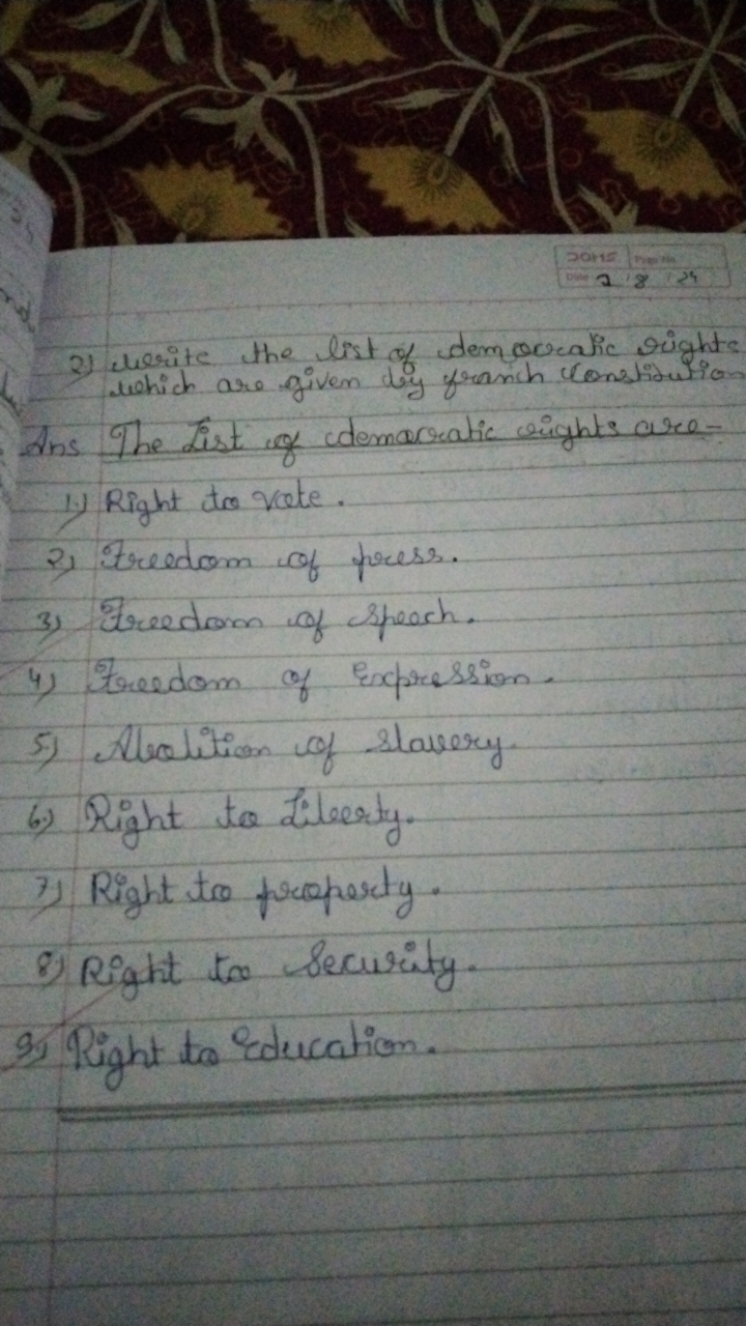 DOMS Page No.
Date 2 8 24
2) Write the list of democratic rights
which are given by franch Constitution
Ans The List of democratic rights are-
1.) Right to vote.
2) Freedom of press.
3) Freedom of speech.
4) Freedom of Expression.
5) Abolition of slavery.
6.) Right to Liberty.
7) Right to property.
8) Right to Security.
9) Right to Education.